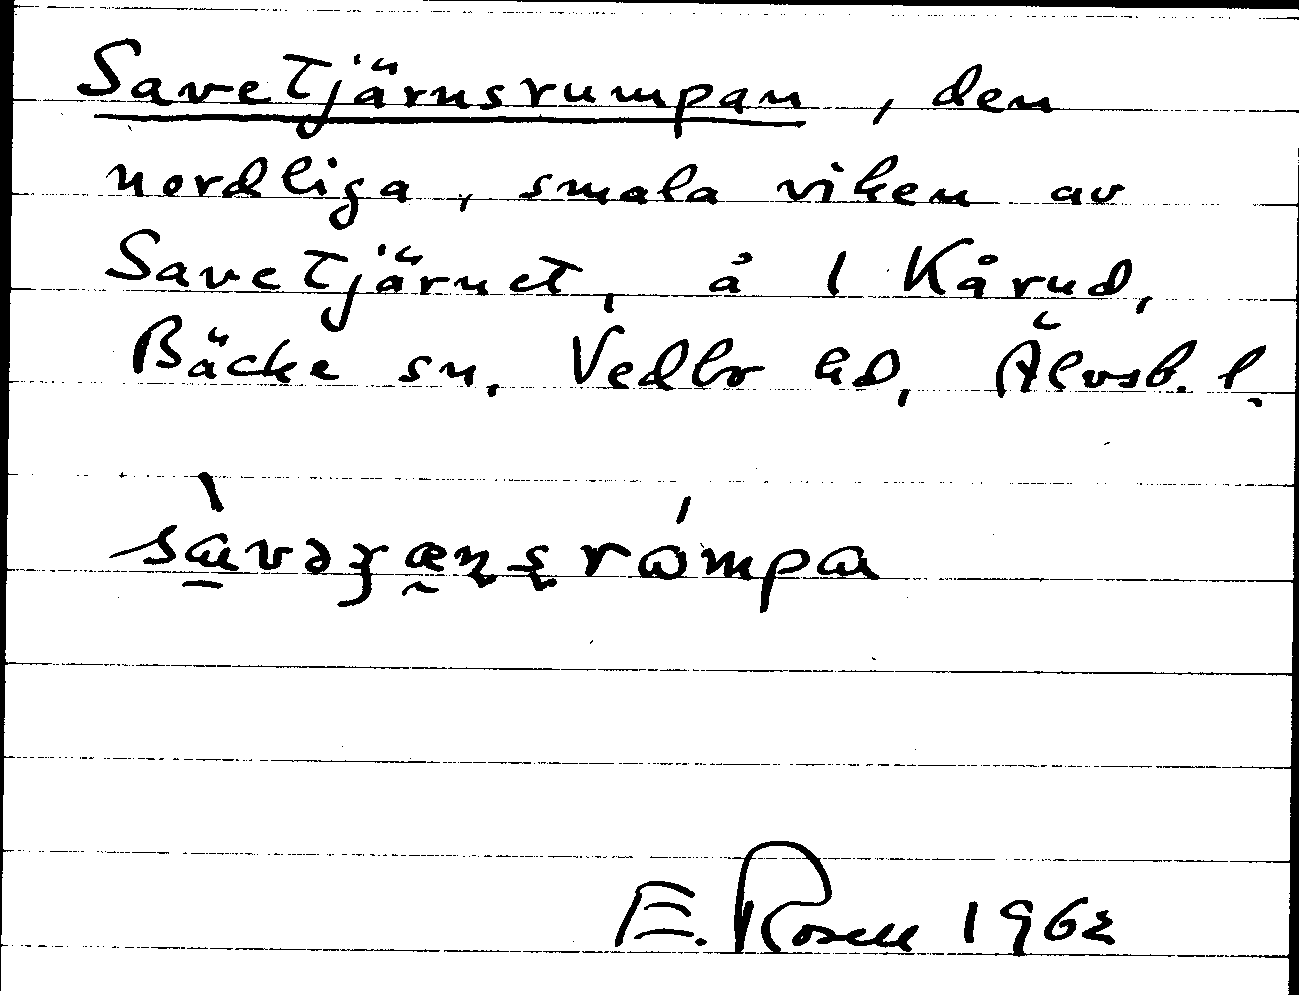 Savetjärnsrumpan, den
nordliga, smala viken av
Savetjärnet, å 1 Kårud,
Bäcke sn. Vedbo hd, Älvsb. l.
E. Rosell 1962